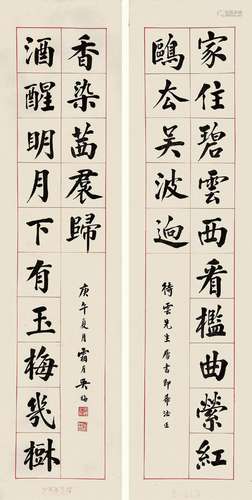 家住碧雲西看檻曲縈紅
鷗去吴波迥
待雲先生屬書即希法正
酒醒明月下有玉梅幾樹
香染茜裠歸
庚午夏月霜厓吳梅